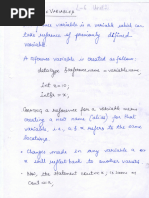 VARIABLES
reference variable is a variable which can
take reference of previously defined
variable
A reference variable is created as follows:
datatype &reference name = variable name
Int x=10;
Int &r = x;
Creating a reference for a variable means
creating a next name (alias) for that
variable i.e, x & r refers to the same
location.
Changes made in any variable x or
r will reflect back to another variable.
Now, the statement cout<< x; is same as
cout << r;